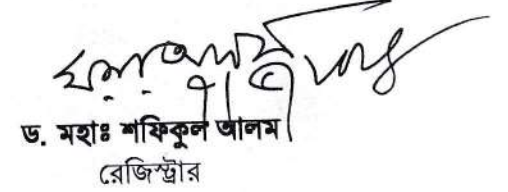 ড. মহাঃ শফিকুল আলম
রেজিস্ট্রার